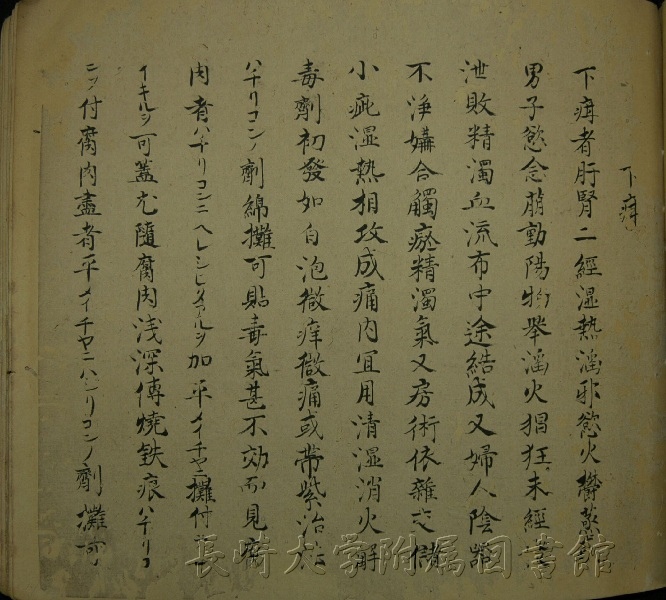 下疳
下疳者肝腎二経湿熱滛邪慾火欝蒸
男子慾念萠動陽物挙滛火猖狂未經
泄敗精濁血流布中途結成又婦人陰器
不浄媾合觸瘀精濁氣又房術依雜交儲
小疵湿熱相攻成痛内宜用清湿消火解
毒劑初發如白泡微痒微痛或帯紫
ハチリコンノ劑綿攤可貼毒氣甚不効而見腐
肉者ハチリコンニ加平メイチヤニ攤付
イキルヲ可蓋尤隨腐肉浅深傳燒鉄痕ハチリコ
ニヲ付腐肉盡者平メイチヤニハシリコンノ劑攤可
長崎大学附属図書館